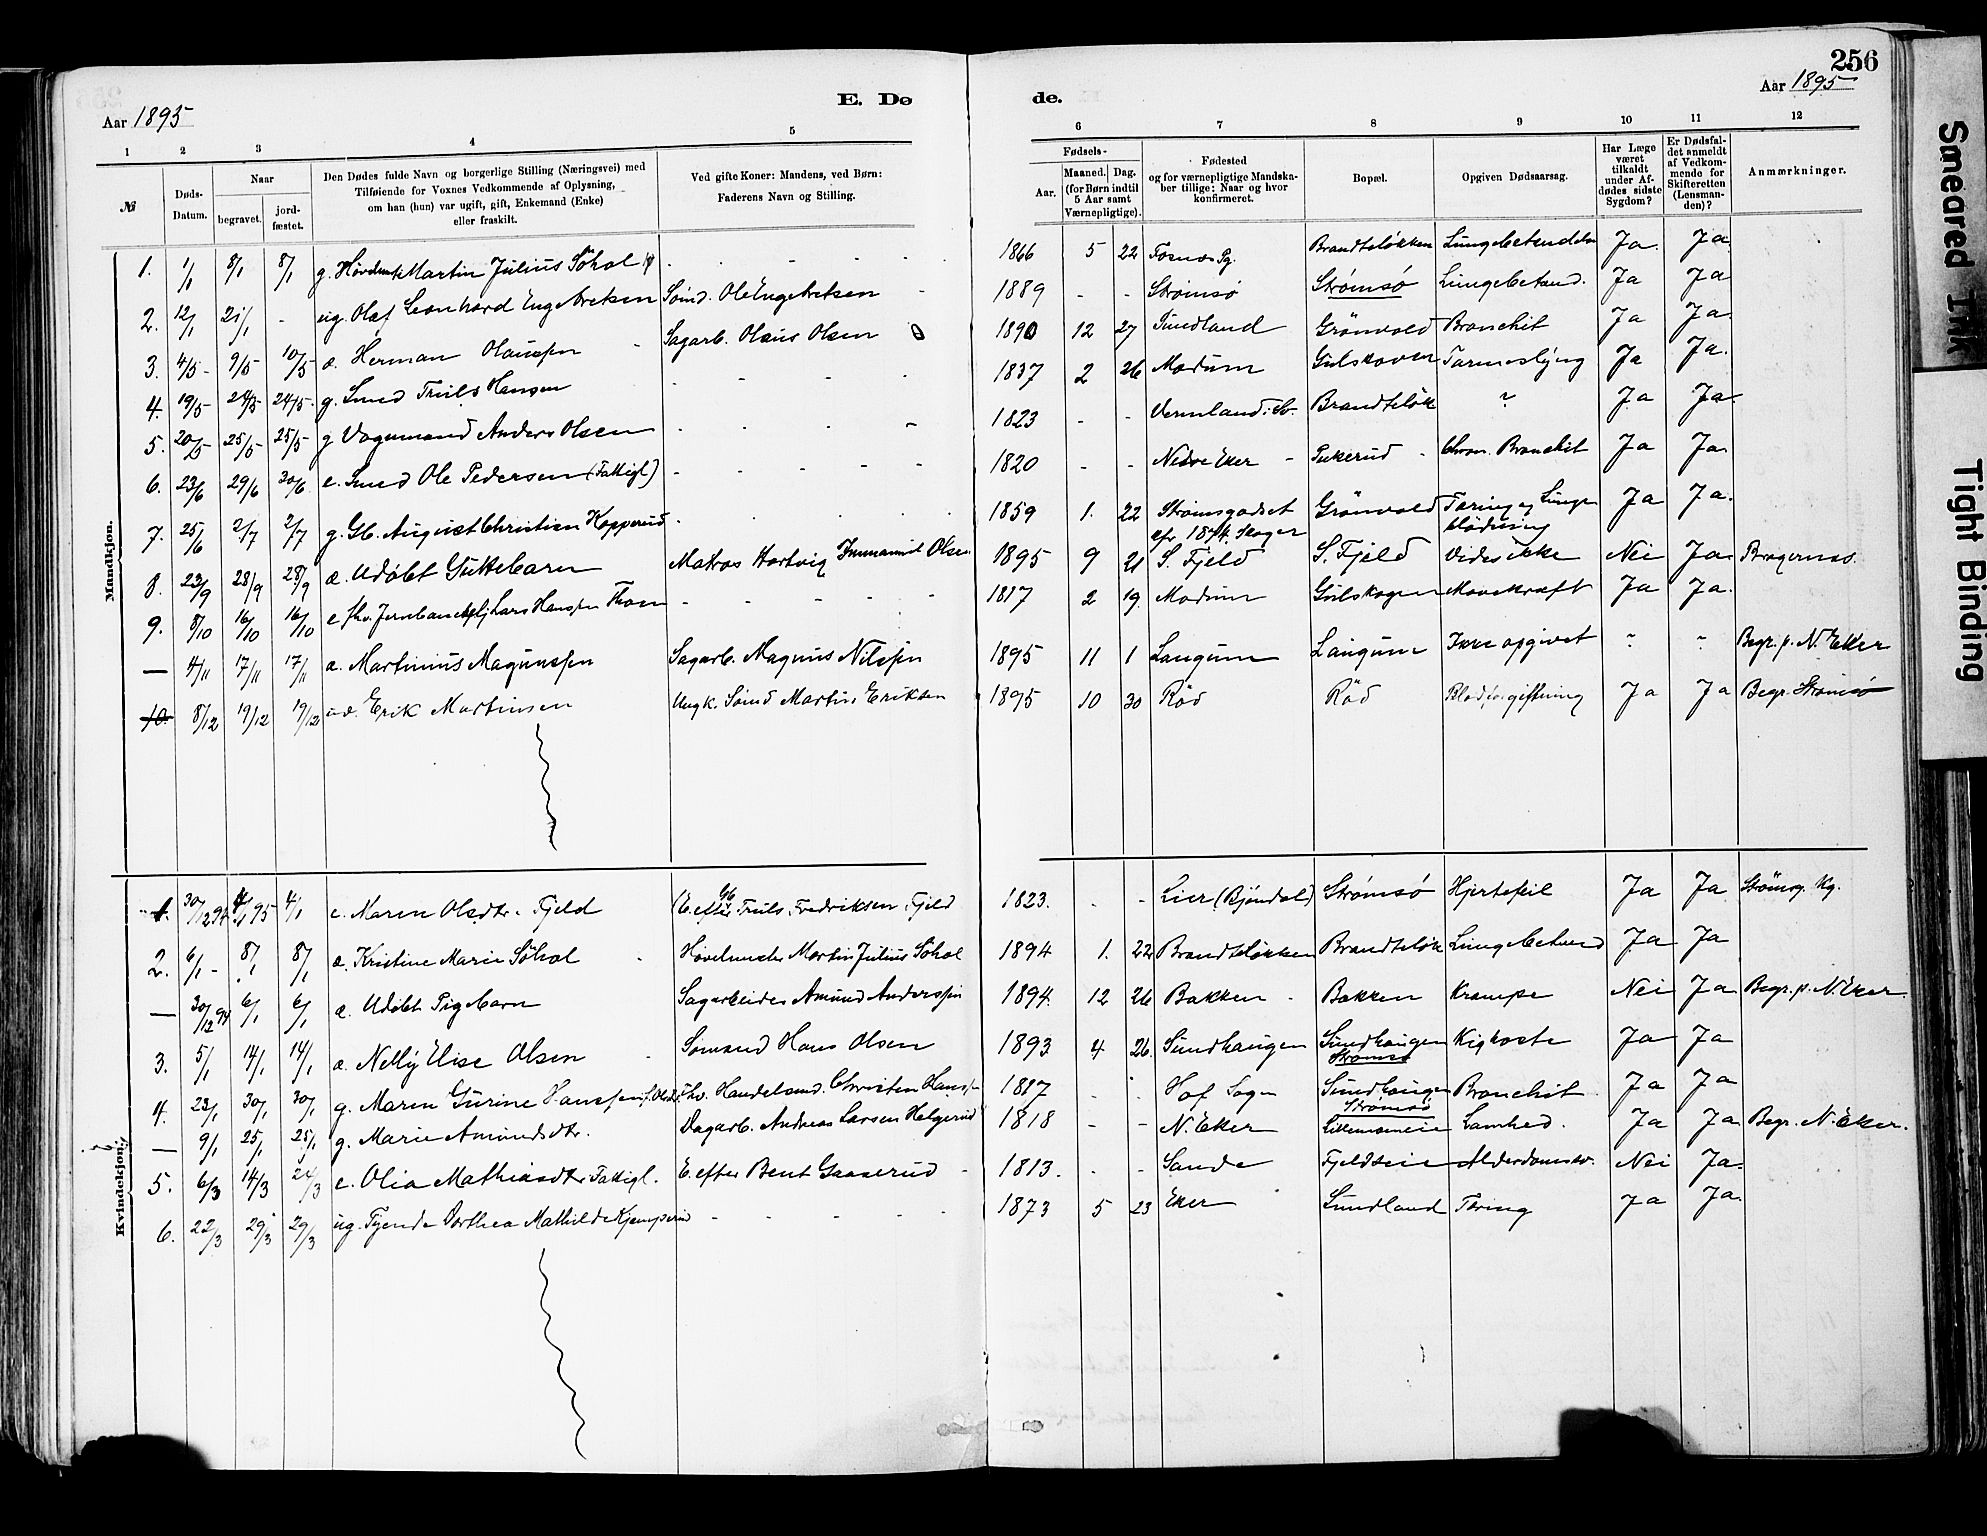 256
Aar 1895
E. Dø
de.
Aar 1895
1 2 3 4 5
6 7 8 9 10 11 12
№
Døds-Datum.
Naar
begravet.
jord-fæstet.
Den Dødes fulde Navn og borgerlige Stilling (Næringsvei) med
Tilføiende for Voxnes Vedkommende af Oplysning,
om han (hun) var ugift, gift, Enkemand (Enke)
eller fraskilt.
Ved gifte Koner: Mandens, ved Børn:
Faderens Navn og Stilling.
Fødsels-
Aar.
Maaned. Dag.
(for Børn indtil
5 Aar samt
Værnepligtige).
Fødested
og for værnepligtige Mandska-
ber tillige: Naar og hvor
konfirmeret.
Bopæl.
Opgiven Dødsaarsag.
Har Læge
været
tilkaldt
under Af-
dødes sidste
Sygdom?
Er Dødsfal-
det anmeldt
af Vedkom-
mende for
Skifteretten
(Lensman-
den)?
Anmærkninger.
Mandkjøn.
1. 1/1 8/1 8/1 g. Martin Julius Söhol 1866 5 22 Brandteløkken Ja Ja
2. 12/1 21/1 - ug. Olaf Leonhard Engebretsen Sømd. Ole Engebretsen 1889 - - Strömsö Strömsö Lungebetænd. Ja Ja
3. 4/5 9/5 10/5 a. Herman Olaussen Sagarb. Olaus Olsen 1890 12 27 Sundland Grönvold Bronchit Ja Ja
4. 19/5 24/5 24/5 g. Smed Truls Hansen 1837 2 26 Modum Gulskoven Tarmeslyng Ja Ja.
5. 20/5 25/5 25/5 g. Vognmand Anders Olsen 1823 - - Vermland Brandteløk ? Ja Ja
6. 23/6 29/6 30/6 e. Smed Ole Pedersen (Fattigl) 1820 - - Nedre Eker Chron. Bronchit Ja Ja
7. 25/6 2/7 2/7 g. Gb. August Christian Kopperud 1859 1. 22 Strömsgodset Grönvold Tæring og Lunge Ja Ja.
cfr 1874. Skoger blödning
8. 23/9 28/9 28/9 æ. Udöbt Guttebarn Matros Hartvig Immanuel Olsen 1895 9 21 S. Fjeld S. Fjeld Vides ikke Nei Ja Bragernæs.
9. 8/10 16/10 16/10 e. Lars Hansen 1817 2 19. Modum Gulskogen Mavekræft Ja Ja.
— 4/11 17/11 17/11 a. Martinius Magnussen Sagarb. Magnus Nilssen 1895 11 1 Langum Langum Ikke opgivet " " Begr. p. N. Eker
10. 8/12 19/12 19/12 Erik Martinsen Ungk. Sömd Martin Eriksen 1895 10 30 Röd Röd Blodforgiftning Ja Ja Begr. Strömsö
Kvindekjøn.
1. 30/12 94 4/1 95 4/1 e. Maren Olsdtr. Fjeld (E. efter Gb. Truls Fredriksen Fjeld 1823. - - Lier (Bjöndal) Strömsö Hjertefeil Ja Ja Strömsg. Kg.
2. 6/1 8/1 8/1 æ. Kristine Marie Söhol Martin Julius Söhol 1894 1. 22 Brandteløkken Brandteløk Lungebetænd Ja Ja
— 30/12 94 6/1 6/1 æ. Udöbt Pigebarn Sagarbeider Amund Anderssen 1894. 12 26 Bakken Bakken Krampe Nei Ja Begr. p. N. Eker.
3. 5/1 14/1 14/1 a. Nelly Elise Olsen Sömand Hans Olsen 1893 4 26. Sundhaugen Sundhaugen Kighoste Ja Ja
Strömsö
4. 23/1 30/1 30/1 g. Maren Gurine Hanssen Fhv. Handelsmd. Christen Hanss. 1817 Hof Sogn Sundhaugen Bronchit Ja Ja
Strömsö
— 9/1 25/1 25/1 g. Marie Amundsdtr. Dagarb. Andreas Larsen Helgerud 1818 - - N. Eker Lamhed. Ja Ja Begr. N. Eker.
5. 6/3 14/3 24/3 e. Olia Mathiasdtr Fattigl. E. efter Bent Gaaserud 1813. - - Sande Alderdomssv. Nei Ja.
6. 22/3 29/3 29/3 ug. Tjende Dorthea Mathilde Kjemperud 1873 5 23 Eker Sundland Tæring Ja Ja.
Smeared Ink
Tight Binding